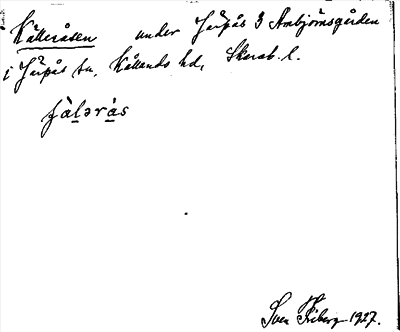 Källeråsen under Järpås 3 Ambjörnsgården
i Järpås sn. Kållands hd, Skarab. l.
jàlərás
Sven Friberg 1927.